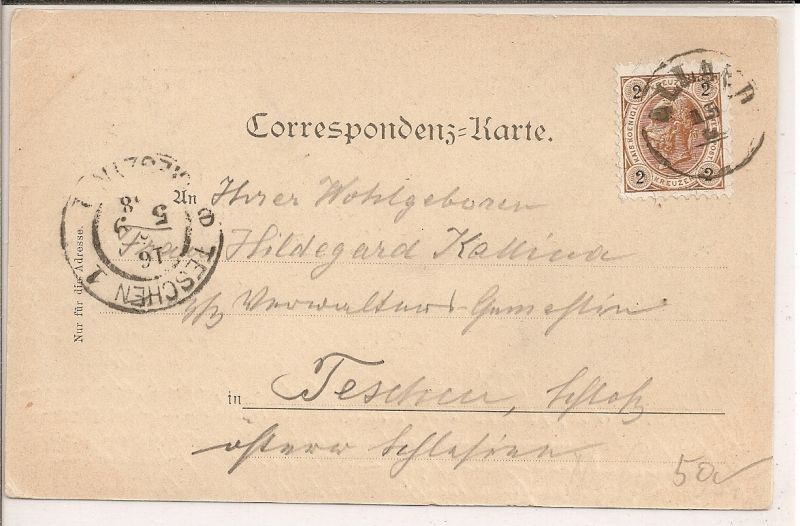 Correspondenz=Karte.
An Ihrer Wohlgeboren
Frau Hildegard Kallina
Verwalters Gemahlin
in Teschen, Schloß
österr Schlesien
Nur für die Adresse.
TESCHEN 1
16
5
2
2
2
2
KREUZER
50